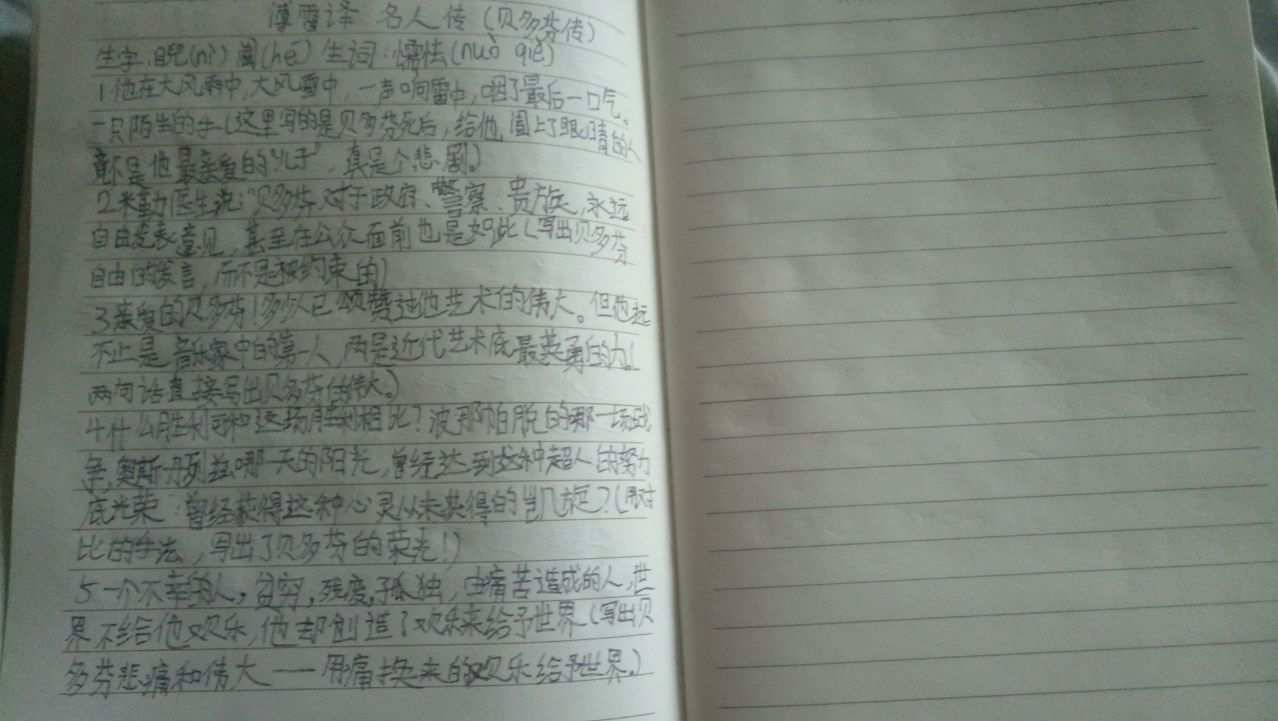 傅雷译 名人传（贝多芬传）
生字：睨(nì) 阖(hé) 生词：懦怯(nuò qiè)
1他在大风雨中，大风雪中，一声响雷中，咽了最后一口气。
一只陌生的手（这里写的是贝多芬死后，给他阖上了眼睛的人
竟不是他最亲爱的“儿子”，真是个悲剧。）
2 医生说：“贝多芬对于政府、警察、贵族，永远
自由发表意见，甚至在公众面前也是如此（写出贝多芬
自由的 言，而不是被约束的）
3亲爱的贝多芬！多少人已颂赞过他艺术的伟大。但他远
不止是音乐家中的第一人，而是近代艺术底最英勇的力。（
两句话直接写出贝多芬的伟大。）
4什么胜利可和这场胜利相比？波那帕脱的哪一场战
争，奥斯丹列兹哪一天的阳光，曾经达到这种超人的努力
底光荣．曾经获得这种心灵从未获得的凯旋？（用对
比的手法，写出了贝多芬的荣光！）
5一个不幸的人，贫穷，残废，孤独，由痛苦造成的人，世
界不给他欢乐，他却创造了欢乐来给予世界（写出贝
多芬悲痛和伟大——用痛换来的欢乐给予世界。）